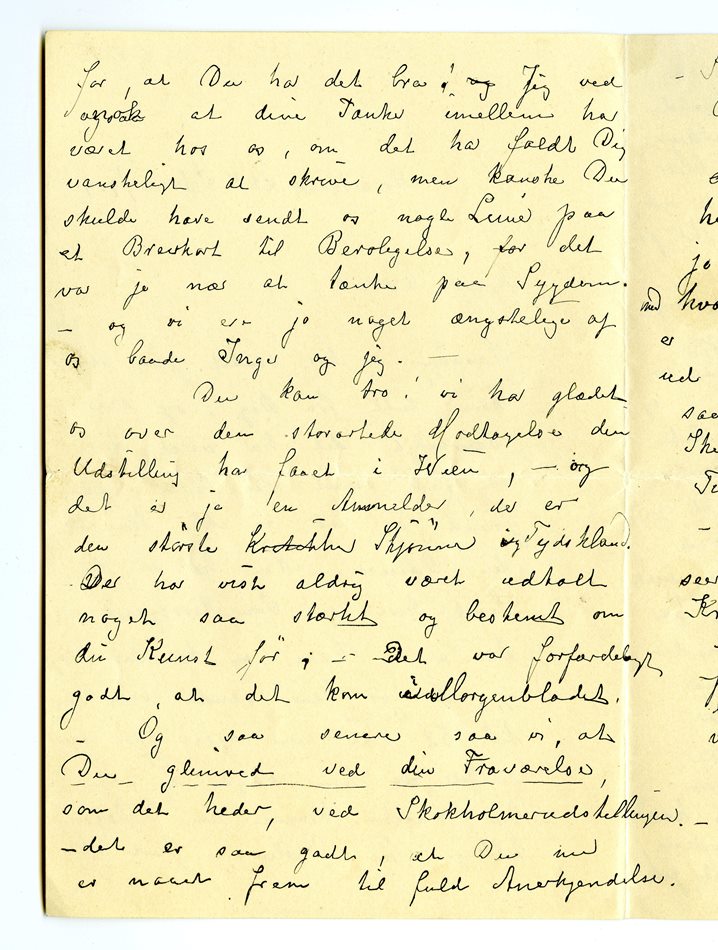 for, at Du har det bra! og Jeg ved
ogsaa at dine Tanke imellem har
været hos os, om det har faldt Dig
vanskeligt at skrive, men kanske Du
skulde have sendt os nogle Linie paa
et Brevkort til Beroligelse, for det
var jo nær at tænke paa Sygdom.
– og vi ere jo noget ængstelige af
os baade Inger og jeg. –
Du kan tro! vi har glædet
os over den storartede Modtagelse din
Udstilling har faaet i Wien, – og
det er jo en Anmelder, der er
den störste Kritikker Skjönner i Tydskland.
Der har vist aldrig været udtalt
noget saa stærkt og bestemt om
din Kunst för; – Det var forfærdeligt
godt, at det kom i Morgenbladet.
– Og saa senere saa vi, at
Du glimred ved din Fraværelse,
som det heder, ved Stokholmerudstillingen. –
– det er saa godt, at Du nu
er naaet frem til fuld Anerkjendelse.
med hvo
er
ud
saa
jo
he
seer
Kr